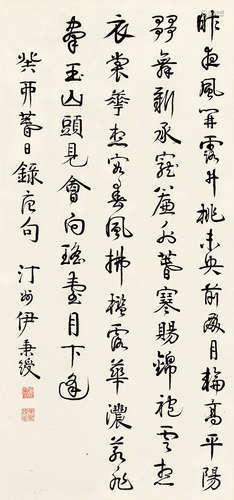 昨夜風開露井桃未央前殿月輪高平陽
歌舞新承寵簾外春寒賜錦袍雲想
衣裳華想容春風拂檻露華濃若非
羣玉山頭見會向瑤臺月下逢
癸酉春日錄唐句 汀州伊秉綬